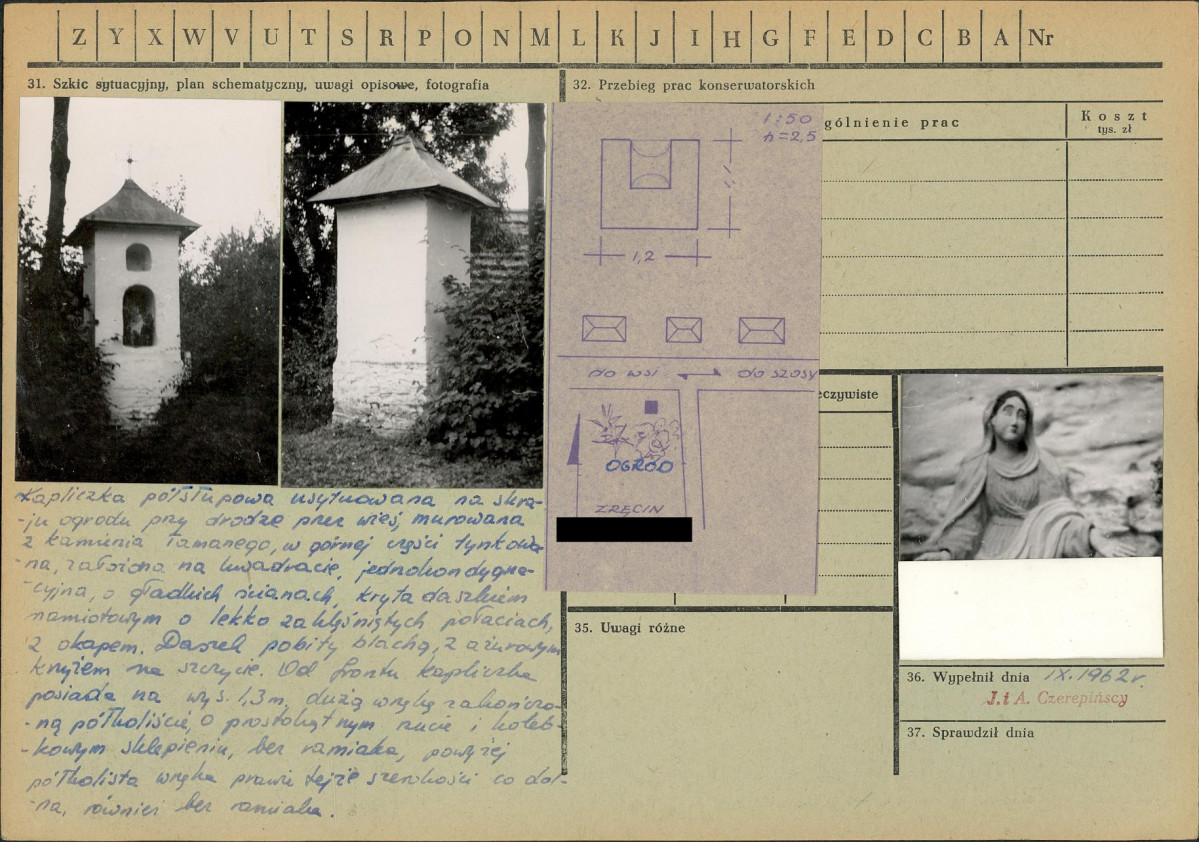 Z Y X W V U T S R P O N M L K J I H G F E D C B A Nr
31. Szkic sytuacyjny, plan schematyczny, uwagi opisowe, fotografia
32. Przebieg prac konserwatorskich
gólnienie prac
Koszt
tys. zł
1:50
h=2,5
1,2
do wsi
do szosy
OGRÓD
ZRĘCIN
eczywiste
Kapliczka półsłupowa usytuowana na skra-
-ju ogrodu przy drodze przez wieś, murowana
z kamienia łamanego, w górnej części tynkowa-
-na, założona na kwadracie, jednokondygna-
-cyjna, o gładkich ścianach, kryta daszkiem
namiotowym o lekko zaklęśniętych połaciach,
z okapem. Daszek pobity blachą, z ażurowym
krzyżem na szczycie. Od frontu kapliczka
posiada na wys. 1,3 m, dużą wnękę zakończo-
-ną półkoliście, o prostokątnym rzucie i koleb-
-kowym sklepieniu, bez ramiaka, powyżej
półkolista wnęka prawie tejże szerokości co dol-
-na, również bez ramiaka.
35. Uwagi różne
36. Wypełnił dnia IX.1962 r.
J. i A. Czerepińscy
37. Sprawdził dnia